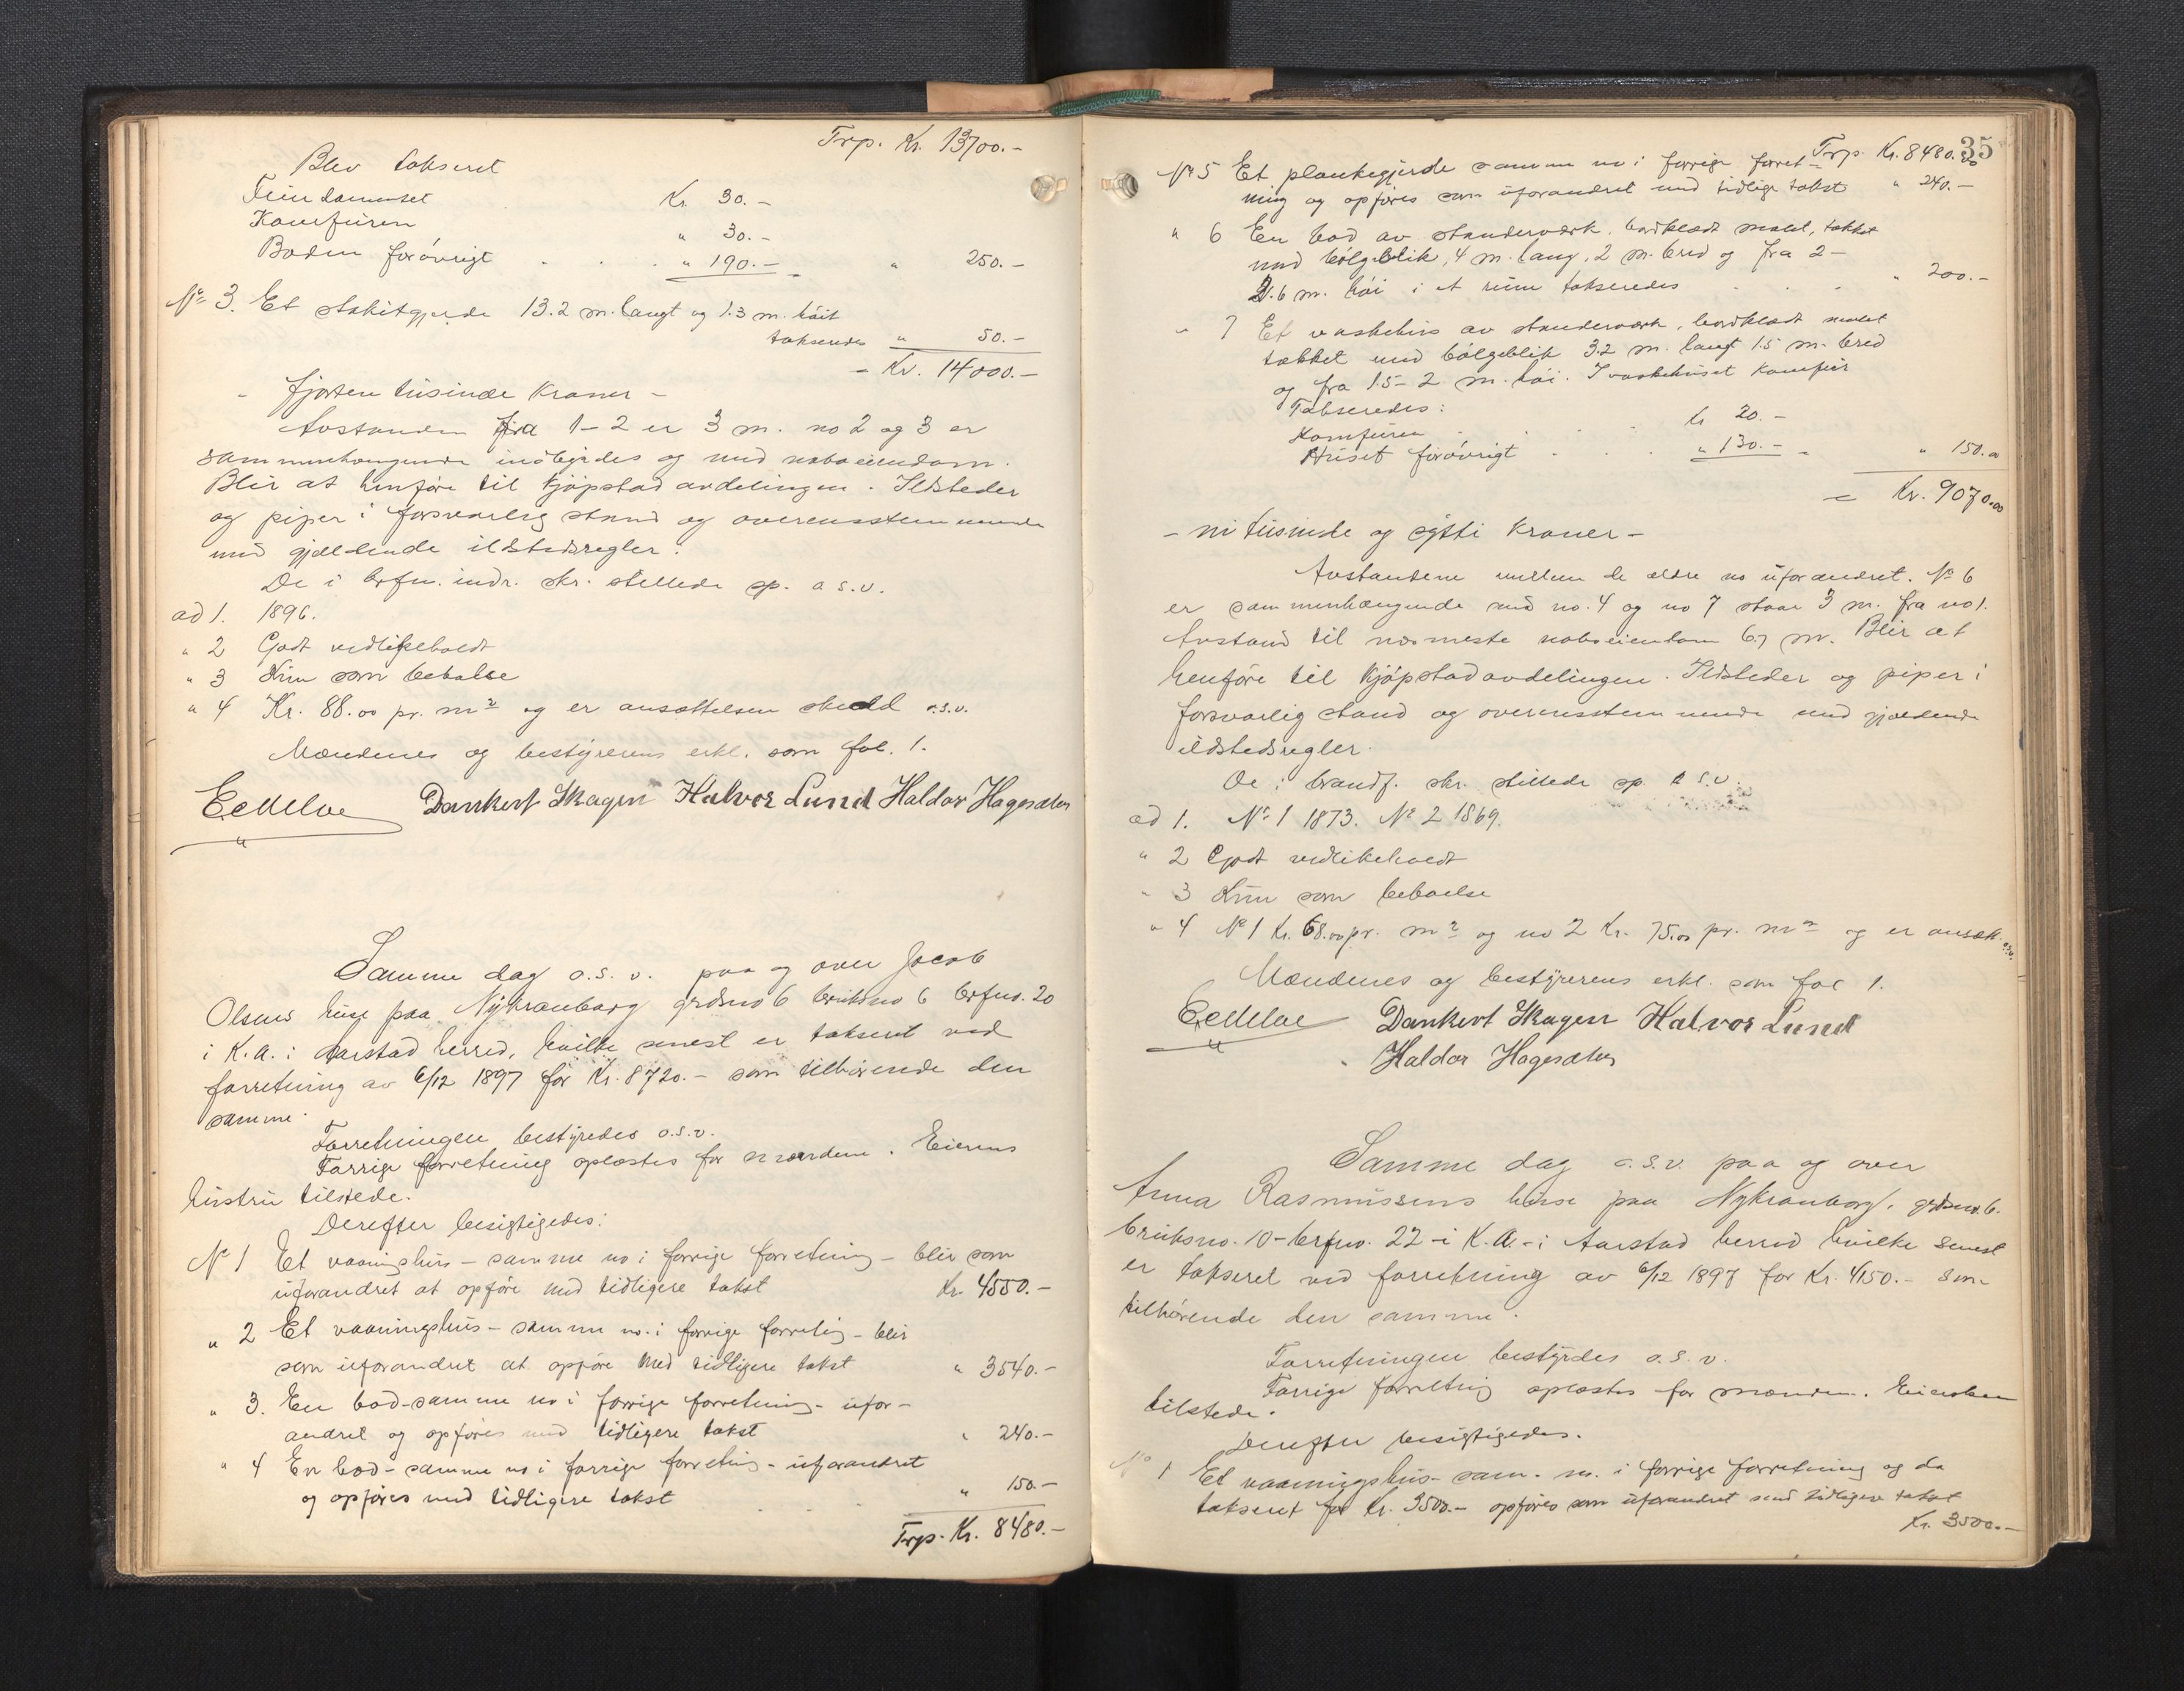 Trp. Kr. 13700.-
Blev takseret
Fundamentet Kr. 30.-
Komfuren " 30.-
Boden forøvrigt . . . " 190.- - " 250.-
No 3. Et stakitgjerde 13.2 m. langt og 1.3 m. høit
takseredes " 50.-
- Kr. 14000.-
- fjorten tusinde Kroner -
Avstanden fra 1-2 er 3 m. no 2 og 3 er
sammenhængende indbyrdes og med naboeiendom.
Blir at henføre til kjøpstadavdelingen. Ildsteder
og piper i forsvarlig stand og overensstemmende
med gjældende ildstedsregler.
De i brfm. indr. skr. stillede sp. o.s.v.
ad 1. 1896.
" 2 Godt vedlikeholdt
" 3 Kun som beboelse
" 4 Kr. 88.00 pr. m2 og er ansættelsen skedd o.s.v.
Mændenes og bestyrerens erkl. som fol. 1.
Dankert Skagen Halvor Lund Haldor Hagesæter
Samme dag o.s.v. paa og over Jacob
Olsens huse paa Nykronborg grdsno 6 bruksno 6 brfno. 20
i K.A. i Aarstad herred, hvilke senest er takseret ved
forretning av 6/12 1897 for Kr. 8720.- som tilhørende den
samme.
Forretningen bestyredes o.s.v.
Forrige forretning oplæstes for mændene. Eierens
hustru tilstede.
Derefter besigtigedes:
No 1 Et vaaningshus - samme no i forrige forretning - blir som
uforandret at opføre med tidligere takst Kr. 4550.-
" 2 Et vaaningshus - samme no. i forrige forretng - blir
som uforandret at opføre med tidligere takst " 3540.-
" 3. En bod - samme no i forrige forretning - ufor-
andret og opføres med tidligere takst " 240.-
" 4 En bod - samme no i forrige forretning - uforandret
og opføres med tidligere takst . . . " 150.-
Trp. Kr. 8480.-
35
Trp. Kr. 8480.00
No 5 Et plankegjerde samme no i forrige forret-
ning og opføres som uforandret med tidlige takst " 240.-
" 6 En bod av standerværk, bordklædt malet, tækket
med bølgeblik, 4 m. lang, 2 m. bred og fra 2-
2.6 m. høi i et rum takseredes . . . " 200.-
" 7 Et vaskehus av standerværk, bordklædt malet
tækket med bølgeblik 3.2 m. langt 1.5 m. bred
og fra 1.5-2 m. høi. I vaskehuset komfur
Takseredes:
Komfuren . . . Kr 20.-
Huset forøvrigt . . . " 130.- - " 150.00
= Kr. 9070.00
- ni tusinde og sytti Kroner -
Avstandene mellem de ældre no uforandret. No 6
er sammenhængende med no. 4 og no 7 staar 3 m. fra no 1.
Avstand til nærmeste naboeiendom 6.7 m. Blir at
henføre til kjøpstadavdelingen. Ildsteder og piper i
forsvarlig stand og overensstemmende med gjældende
ildstedsregler.
De i brandf. skr. stillede sp. o.s.v.
ad 1. No 1 1873. No 2 1869.
" 2 Godt vedlikeholdt
" 3 Kun som beboelse
" 4 No 1 Kr. 68.00 pr. m2 og no 2 Kr. 75.00 pr. m2 og er ansætt. o.s.v.
Mændenes og bestyrerens erkl. som fol 1.
Dankert Skagen Halvor Lund
Haldor Hagesæter
Samme dag o.s.v. paa og over
Anna Rasmussens huse paa Nykronborg, grdsno. 6.
bruksno. 10 - brfno. 22 - i K.A. - i Aarstad herred hvilke senest
er takseret ved forretning av 6/12 1897 for Kr. 4150.- som
tilhørende den samme.
Forretningen bestyrdes o.s.v.
Forrige forretnig oplæstes for mænden. Eiersken
tilstede.
Derefter besigtigedes.
No 1 Et vaaningshus - sam. no. i forrige forretning og da
takseret for Kr. 3500.- opføres som uforandret med tidligere takst
Kr. 3500.-